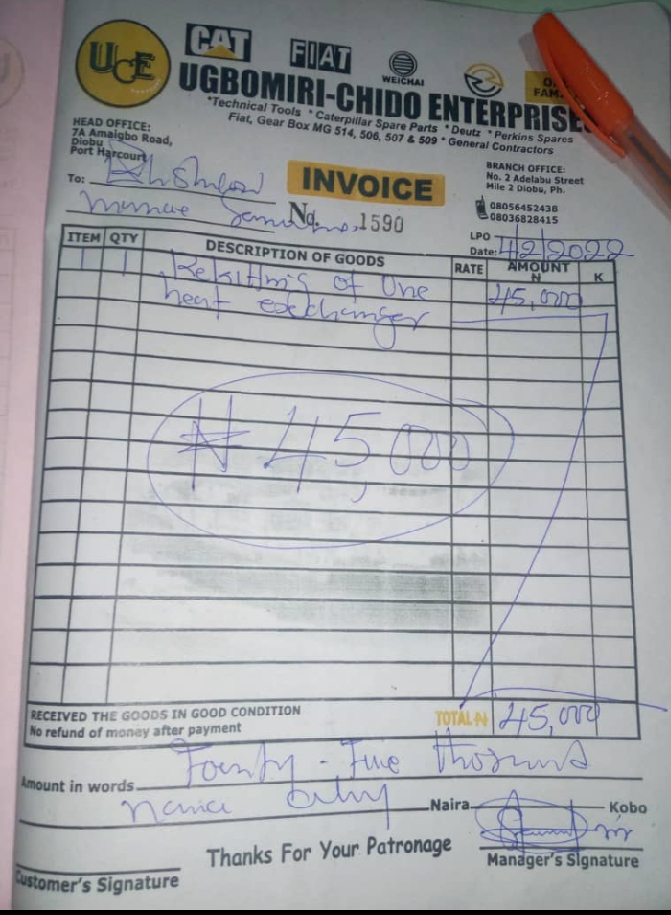 UCE
CAT FIAT WEICHAI
UGBOMIRI-CHIDO ENTERPRISE
*Technical Tools *Caterpillar Spare Parts *Deutz *Perkins Spares
Fiat, Gear Box MG 514, 506, 507 & 509 *General Contractors
HEAD OFFICE:
7A Amaigbo Road,
Diobu
Port Harcourt
BRANCH OFFICE:
No. 2 Adelabu Street
Mile 2 Diobu, Ph.
08056452438
08036828415
To:
INVOICE
No. 1590
LPO
Date: 4/2/2022
ITEM QTY DESCRIPTION OF GOODS RATE AMOUNT N K
1 1 Rekitting of One 45,000
heat exchanger
₦ 45,000
RECEIVED THE GOODS IN GOOD CONDITION
No refund of money after payment
TOTAL ₦ 45,000
Amount in words Fourty-Five thosund
naira only Naira Kobo
Thanks For Your Patronage
Customer's Signature
Manager's Signature